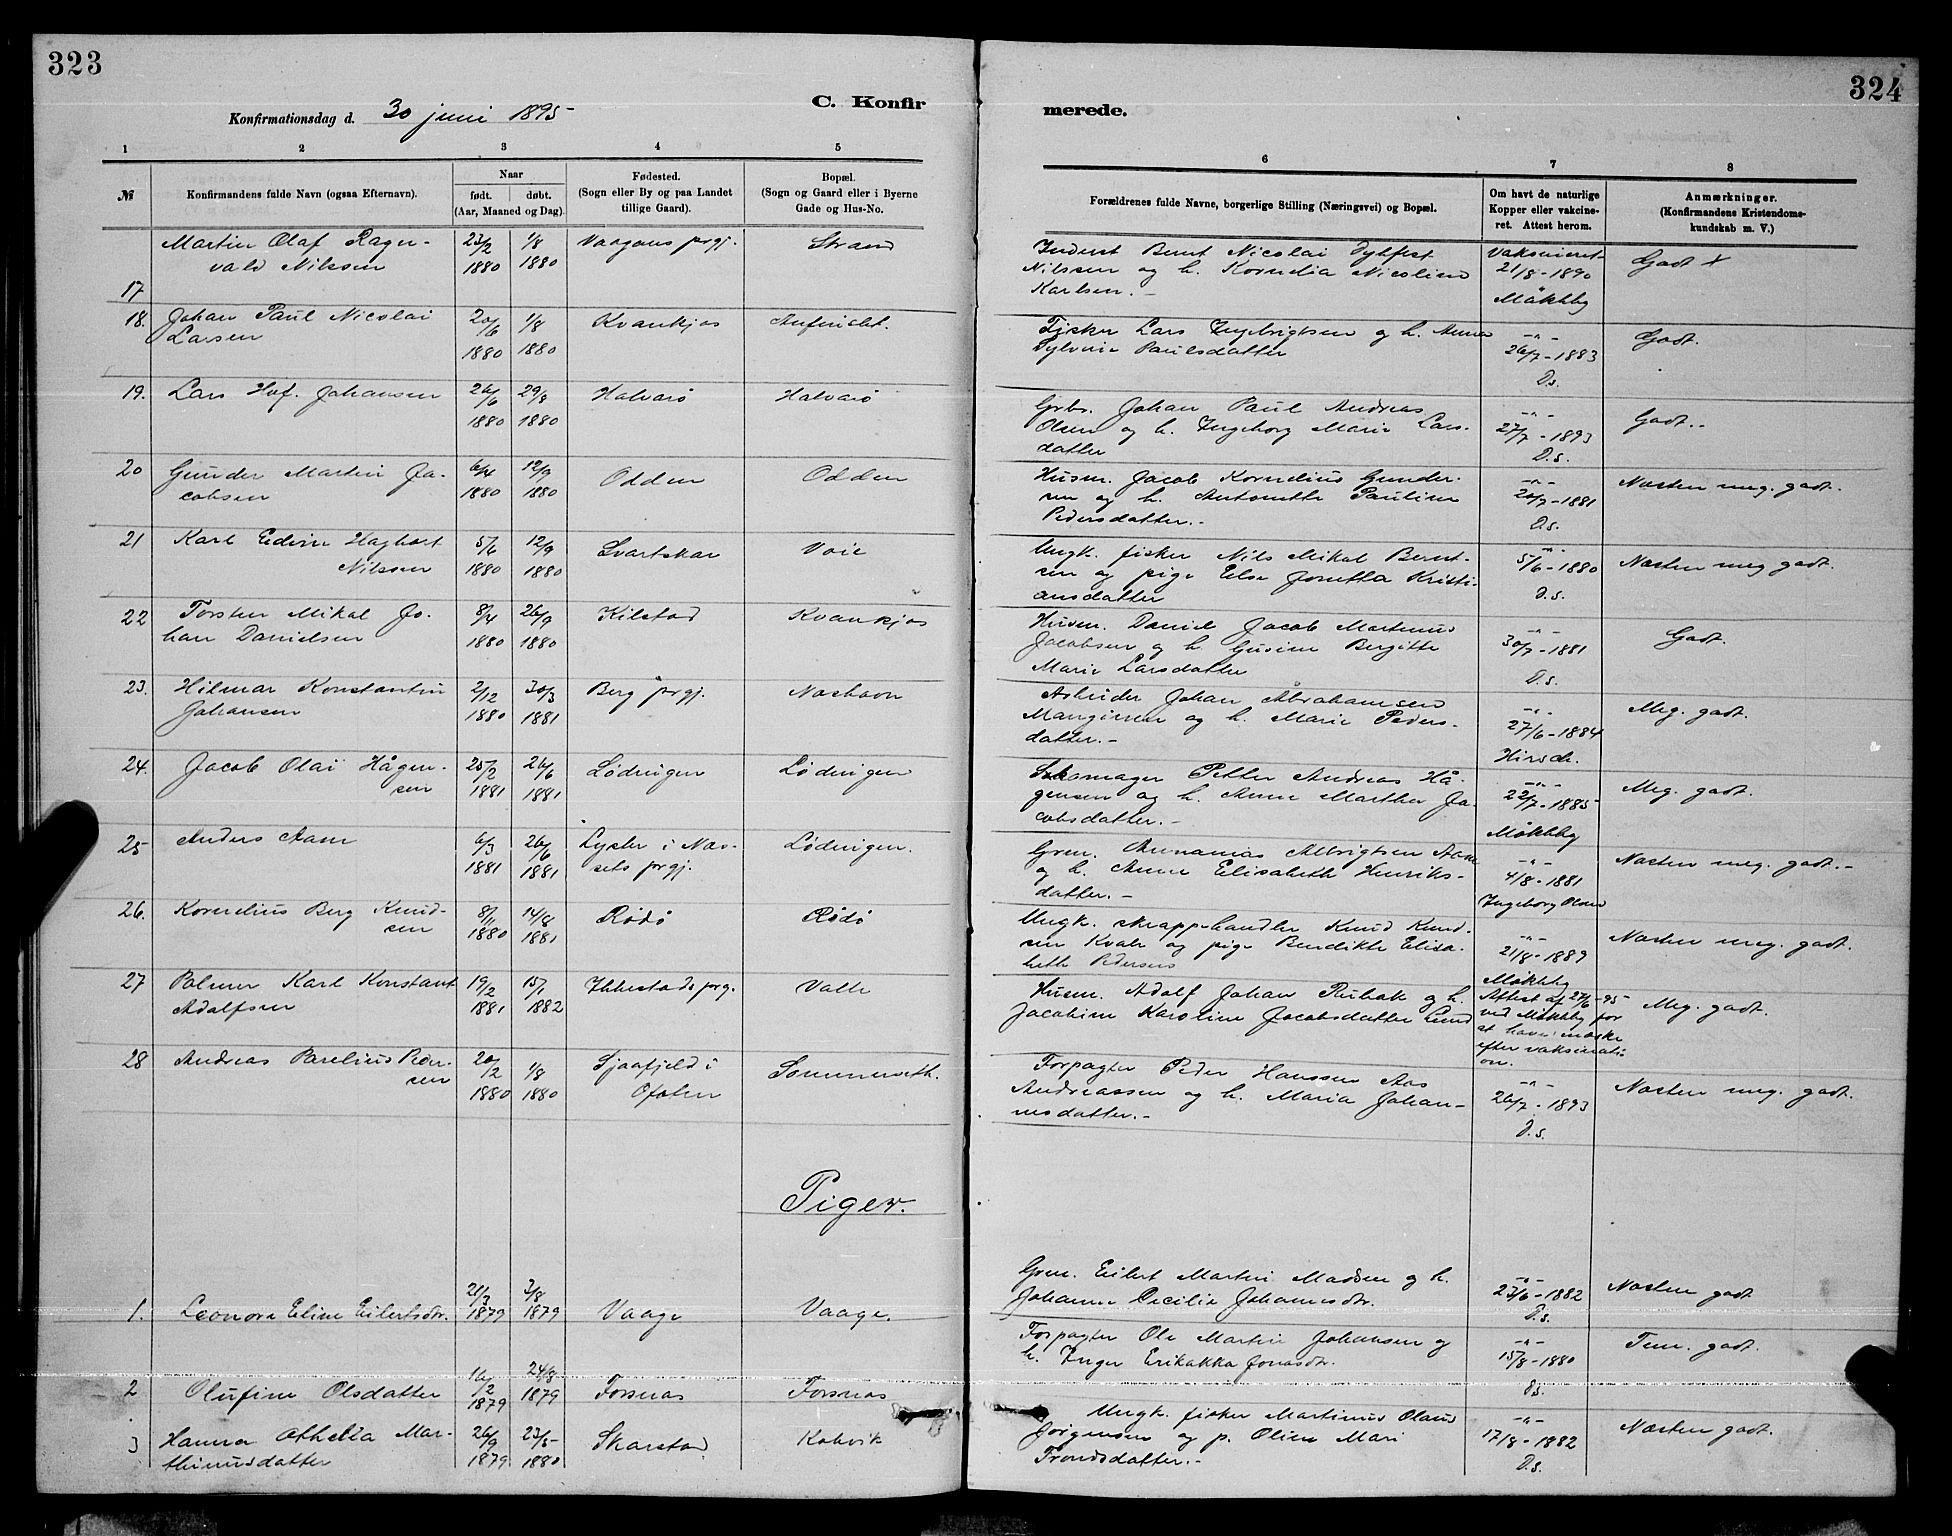 323
324
C. Konfir
merede.
Konfirmationsdag d. 30 juni 1895
1 2 3 4 5
6 7 8
№
Konfirmandens fulde Navn (ogsaa Efternavn).
Naar
født. døbt.
(Aar, Maaned og Dag)
Fødested.
(Sogn eller By og paa Landet
tillige Gaard).
Bopæl.
(Sogn og Gaard eller i Byerne
Gade og Hus-No.
Forældrenes fulde Navne, borgerlige Stilling (Næringsvei) og Bopæl.
Om havt de naturlige
Kopper eller vakcine-
ret. Attest herom.
Anmærkninger.
(Konfirmandens Kristendoms-
kundskab m. V.)
17 Martin Olaf Ragn-
vald Nilssen
23/2 1880
1/8 1880
Vaagans prgj.
Strand
Inderst Bernt Nicolai
Nilssen og h. Kornelia Nicoline
Karlsen.-
Vaksineret
21/8-1890
Mökkby
Godt x
18. Johan Paul Nicolai
Larsen
20/6 1880
1/8 1880
Kvankjos
Fisker Lars Ingebrigtsen og h. Anna
Sylvine Paulsdatter
-"-
26/7-1883
D.s.
Godt.
19. Lars Hof. Johansen
26/6 1880
29/8 1880
Halvarö
Halvarö
Grbr. Johan Paul Andreas
Olsen og h. Ingeborg Marie Lars-
datter
-"-
27/7-1893
D.s.
Godt.-
20 Gunder Martin Ja-
cobsen
6/4 1880
12/9 1880
Odden
Odden
Husm. Jacob Kornelius Gunder-
sen og h. Antonette Pauline
Pedersdatter.-
-"-
20/7-1881
D.s.
Næsten meg. godt.
21 Karl Edvin Haghart
Nilssen
5/6 1880
12/9 1880
Svartskar
Voie
Ungk. fisker Nils Mikal Bernt-
sen og pige Else Jonetta Kristi-
ansdatter
-"-
5/6-1880
D.s.
Næsten meg godt.
22 Torsten Mikal Jo-
han Danielsen
8/4 1880
26/9 1880
Kilstad
Kvankjos
Husm. Daniel Jacob Martinus
Jacobsen og h. Gusine Bergitte
Marie Larsdatter
-"-
30/7-1881
D.s.
Godt.
23. Hilmar Konstantin
Johansen
2/12 1880
30/3 1881
Berg prgj.
Næshavn
Arbeider Johan Abrahamsen
og h. Marie Peders-
datter.-
-"-
27/6-1884
Hirsch.
Meg. godt.
24. Jacob Olai Hågen-
sen
25/2 1881
26/6 1881
Lødingen
Lødingen
Skomager Petter Andreas Hå-
gensen og h. Anne Marthea Ja-
cobsdatter.-
-"-
22/7-1885
Mökkby
Meg. godt.
25 Anders Aam
6/3 1881
26/6 1881
i Næs-
sets prgj.
Lødingen.
Grm. Annanias Albrigtsen Aam
og h. Anne Elisabeth Henriks-
datter.-
-"-
4/8-1881
Ingeborg Olsen
Næsten meg. godt.-
26. Kornelius Berg Knud-
sen
8/11 1880
14/8 1881
Rödö
Rödö
Ungk. skræppehandler Knud Knud-
sen Kvale og pige Bendikte Elisa-
beth Pedersen
-"-
21/8-1889
Mökkby
Næsten meg. godt.
27 Palmer Karl Konstant
Adolfsen
19/2 1881
15/1 1882
Ibbestads prg.
Valle
Husm. Adolf Johan og h.
Jacobine Karoline Jacobsdatter Lund
Attest af 27/6-95
ved Mökkby for
at have mæske
efter vaksinati-
on.
Meg. godt.
28 Andreas Parelius Peder-
sen
20/2 1880
1/8 1880
Sjaafjeld i
Ofoten
Sommerseth.
Forpagter Peder Hanssen Aas
Andreassen og h. Maria Johan-
nesdatter.-
-"-
26/7-1893
D.s.
Næsten meg. godt.
Piger.
1. Leonora Eline Eilertsdtr.
21/3 1879
3/8 1879
Vaage
Vaage.
Grm. Eilert Martin Madsen og h.
Johanne Cecilie Johannesdtr.
-"-
23/6-1882
D.s.
Næsten godt
2 Olufine Olsdatter
16/2 1879
24/8 1879
Forsnæs
Forsnæs
Forpagter Ole Martin Johansen og
h. Inger Erikakka Jonasdtr.
-"-
15/8-1880
D.s.
Tem. godt.
3 Hanna Othelia Mar-
thinusdatter
26/9 1879
23/5 1880
Skarstad
Kobvik
Ungk. fisker Martinus Olaus
Jörgensen og p. Oline Mari
Trondsdatter.-
-"-
17/8-1882
D.s.
Næsten godt.